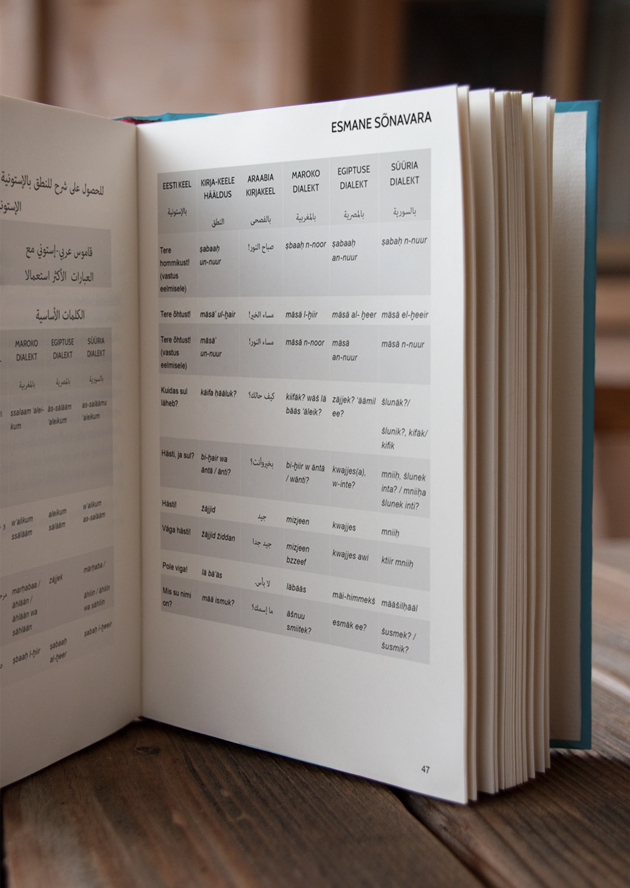 للحصول على شرح للنطق بالإستونية
قاموس عربي-إستوني مع
العبارات الأكثر استعمالا
الكلمات الأساسية
MAROKO DIALEKT EGIPTUSE DIALEKT SÜÜRIA DIALEKT
بالمغربية بالمصرية بالسورية
ssalaam 'alei-kum as-salaam 'aleikum as-salaamu 'aleikum
w'alikum ssalaam aleikum salaam w'aleikum as-salaam
marhabaa / ahlään / ahlään wa sahlän zajjek marhaba /
ahliin / ahliin wa sahliin
sbaah l-hiir sabaah al-heer sabah l-heer
ESMANE SÕNAVARA
EESTI KEEL KIRJA-KEELE HÄÄLDUS ARAABIA KIRJAKEEL MAROKO DIALEKT EGIPTUSE DIALEKT SÜÜRIA DIALEKT
بالإستونية النطق بالفصحى بالمغربية بالمصرية بالسورية
Tere hommikust! (vastus eelmisele) ṣabaaḥ un-nuur صباح النور! ṣbaaḥ n-noor ṣabaaḥ an-nuur ṣabaḥ n-nuur
Tere õhtust! mäsä' ul-ḫair مساء الخير! mäsä l-ḫiir mäsä al-ḫeer mäsä el-ḫeeir
Tere õhtust! (vastus eelmisele) mäsä' un-nuur مساء النور! mäsä n-noor mäsä an-nuur mäsä n-nuur
Kuidas sul läheb? käifa ḥääluk? كيف حالك؟ kiifäk? wäš lä bääs 'äleik? zäjjek? 'äämil ee? šlunäk?/
šlunik?, kifäk/ kifik
Hästi, ja sul? bi-ḫair wa äntä / änti? بخير وأنت؟ bi-ḫiir w äntä / wänti? kwajjes(a), w-inte? mniiḥ, šlunek inta? / mniiḥa šlunek inti?
Hästi! zäjjid جيد mizjeen kwajjes mniiḥ
Väga hästi! zäjjid židdan جيد جدا mizjeen bzzeef kwajjes awi ktiir mniiḥ
Pole viga! lä bä'äs لا بأس. labääs mäi-himmekš määšilḥääl
Mis su nimi on? mää ismuk? ما إسمك؟ äšnuu smiitek? esmäk ee? šusmek? / šusmik?
47